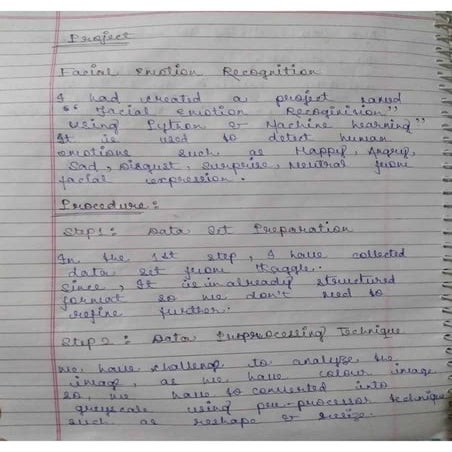 Project
Facial Emotion Recognition
I had created a project named
"Facial Emotion Recoginision"
Using Python & Machine Learning"
It is used to detect human
emotions such as Happy, Angry,
Sad, Disgust, Surprise, Neutral from
facial expression.
Procedure:
Step 1: Data Set Preparation
In the 1st step, I have collected
data set from Kaggle.
Since, It is in already structured
format so we don't need to
refine further.
Step 2: Data Preprocessing Technique
We have challenge to analyze the
image, as we have colour image
so, we have to converted into
greyscale using pre-processor technique
such as reshape or resize.